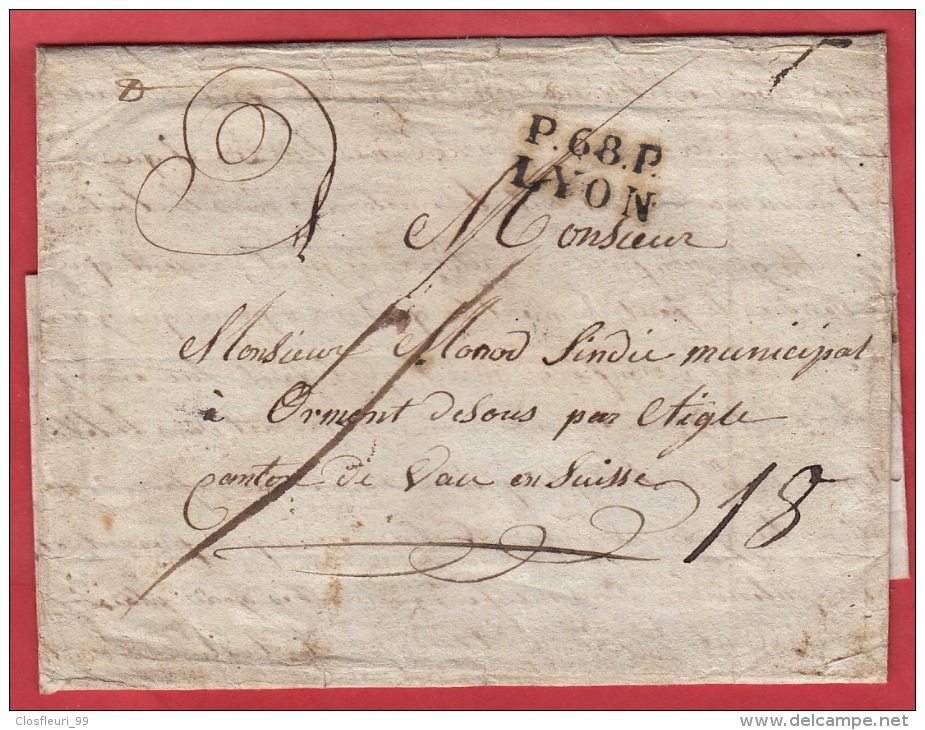 P.68.P.
LYON
Monsieur
Monsieur Monod Sindic municipal
à Ormont desous par Aigle
canton de Vau en Suisse
18
Closfleuri_99
www.delcampe.net